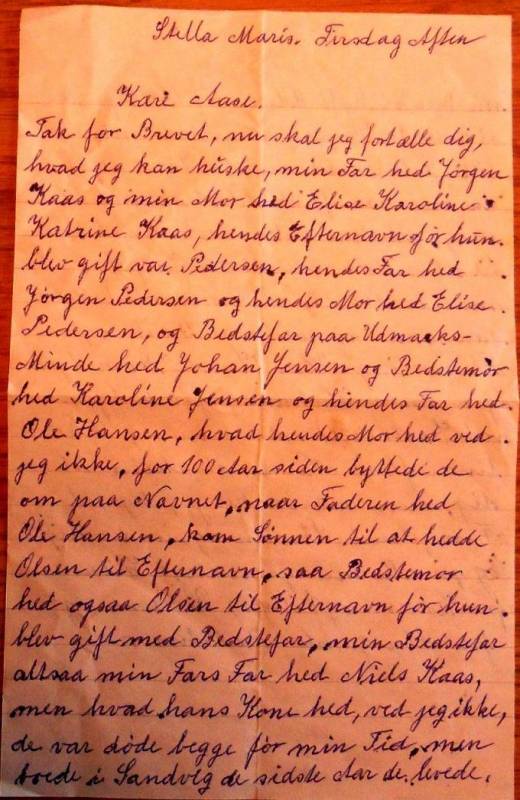 Stella Maris. Tirsdag Aften
Kære Aase.
Tak for Brevet, nu skal jeg fortælle dig,
hvad jeg kan huske, min Far hed Jørgen
Kaas og min Mor hed Elise Karoline
Katrine Kaas, hendes Efternavn før hun
blev gift var Pedersen, hendes Far hed
Jørgen Pedersen og hendes Mor hed Elise
Pedersen, og Bedstefar paa Udmarks-
Minde hed Johan Jensen og Bedstemor
hed Karoline Jensen og hendes Far hed
Ole Hansen, hvad hendes Mor hed ved
jeg ikke, for 100 Aar siden byttede de
om paa Navnet, naar Faderen hed
Ole Hansen, kom Sønnen til at hedde
Olsen til Efternavn, saa Bedstemor
hed ogsaa Olsen til Efternavn før hun
blev gift med Bedstefar, min Bedstefar
altsaa min Fars Far hed Niels Kaas,
men hvad hans Kone hed, ved jeg ikke,
de var døde begge før min Tid, men
boede i Sandvig de sidste Aar de levede.